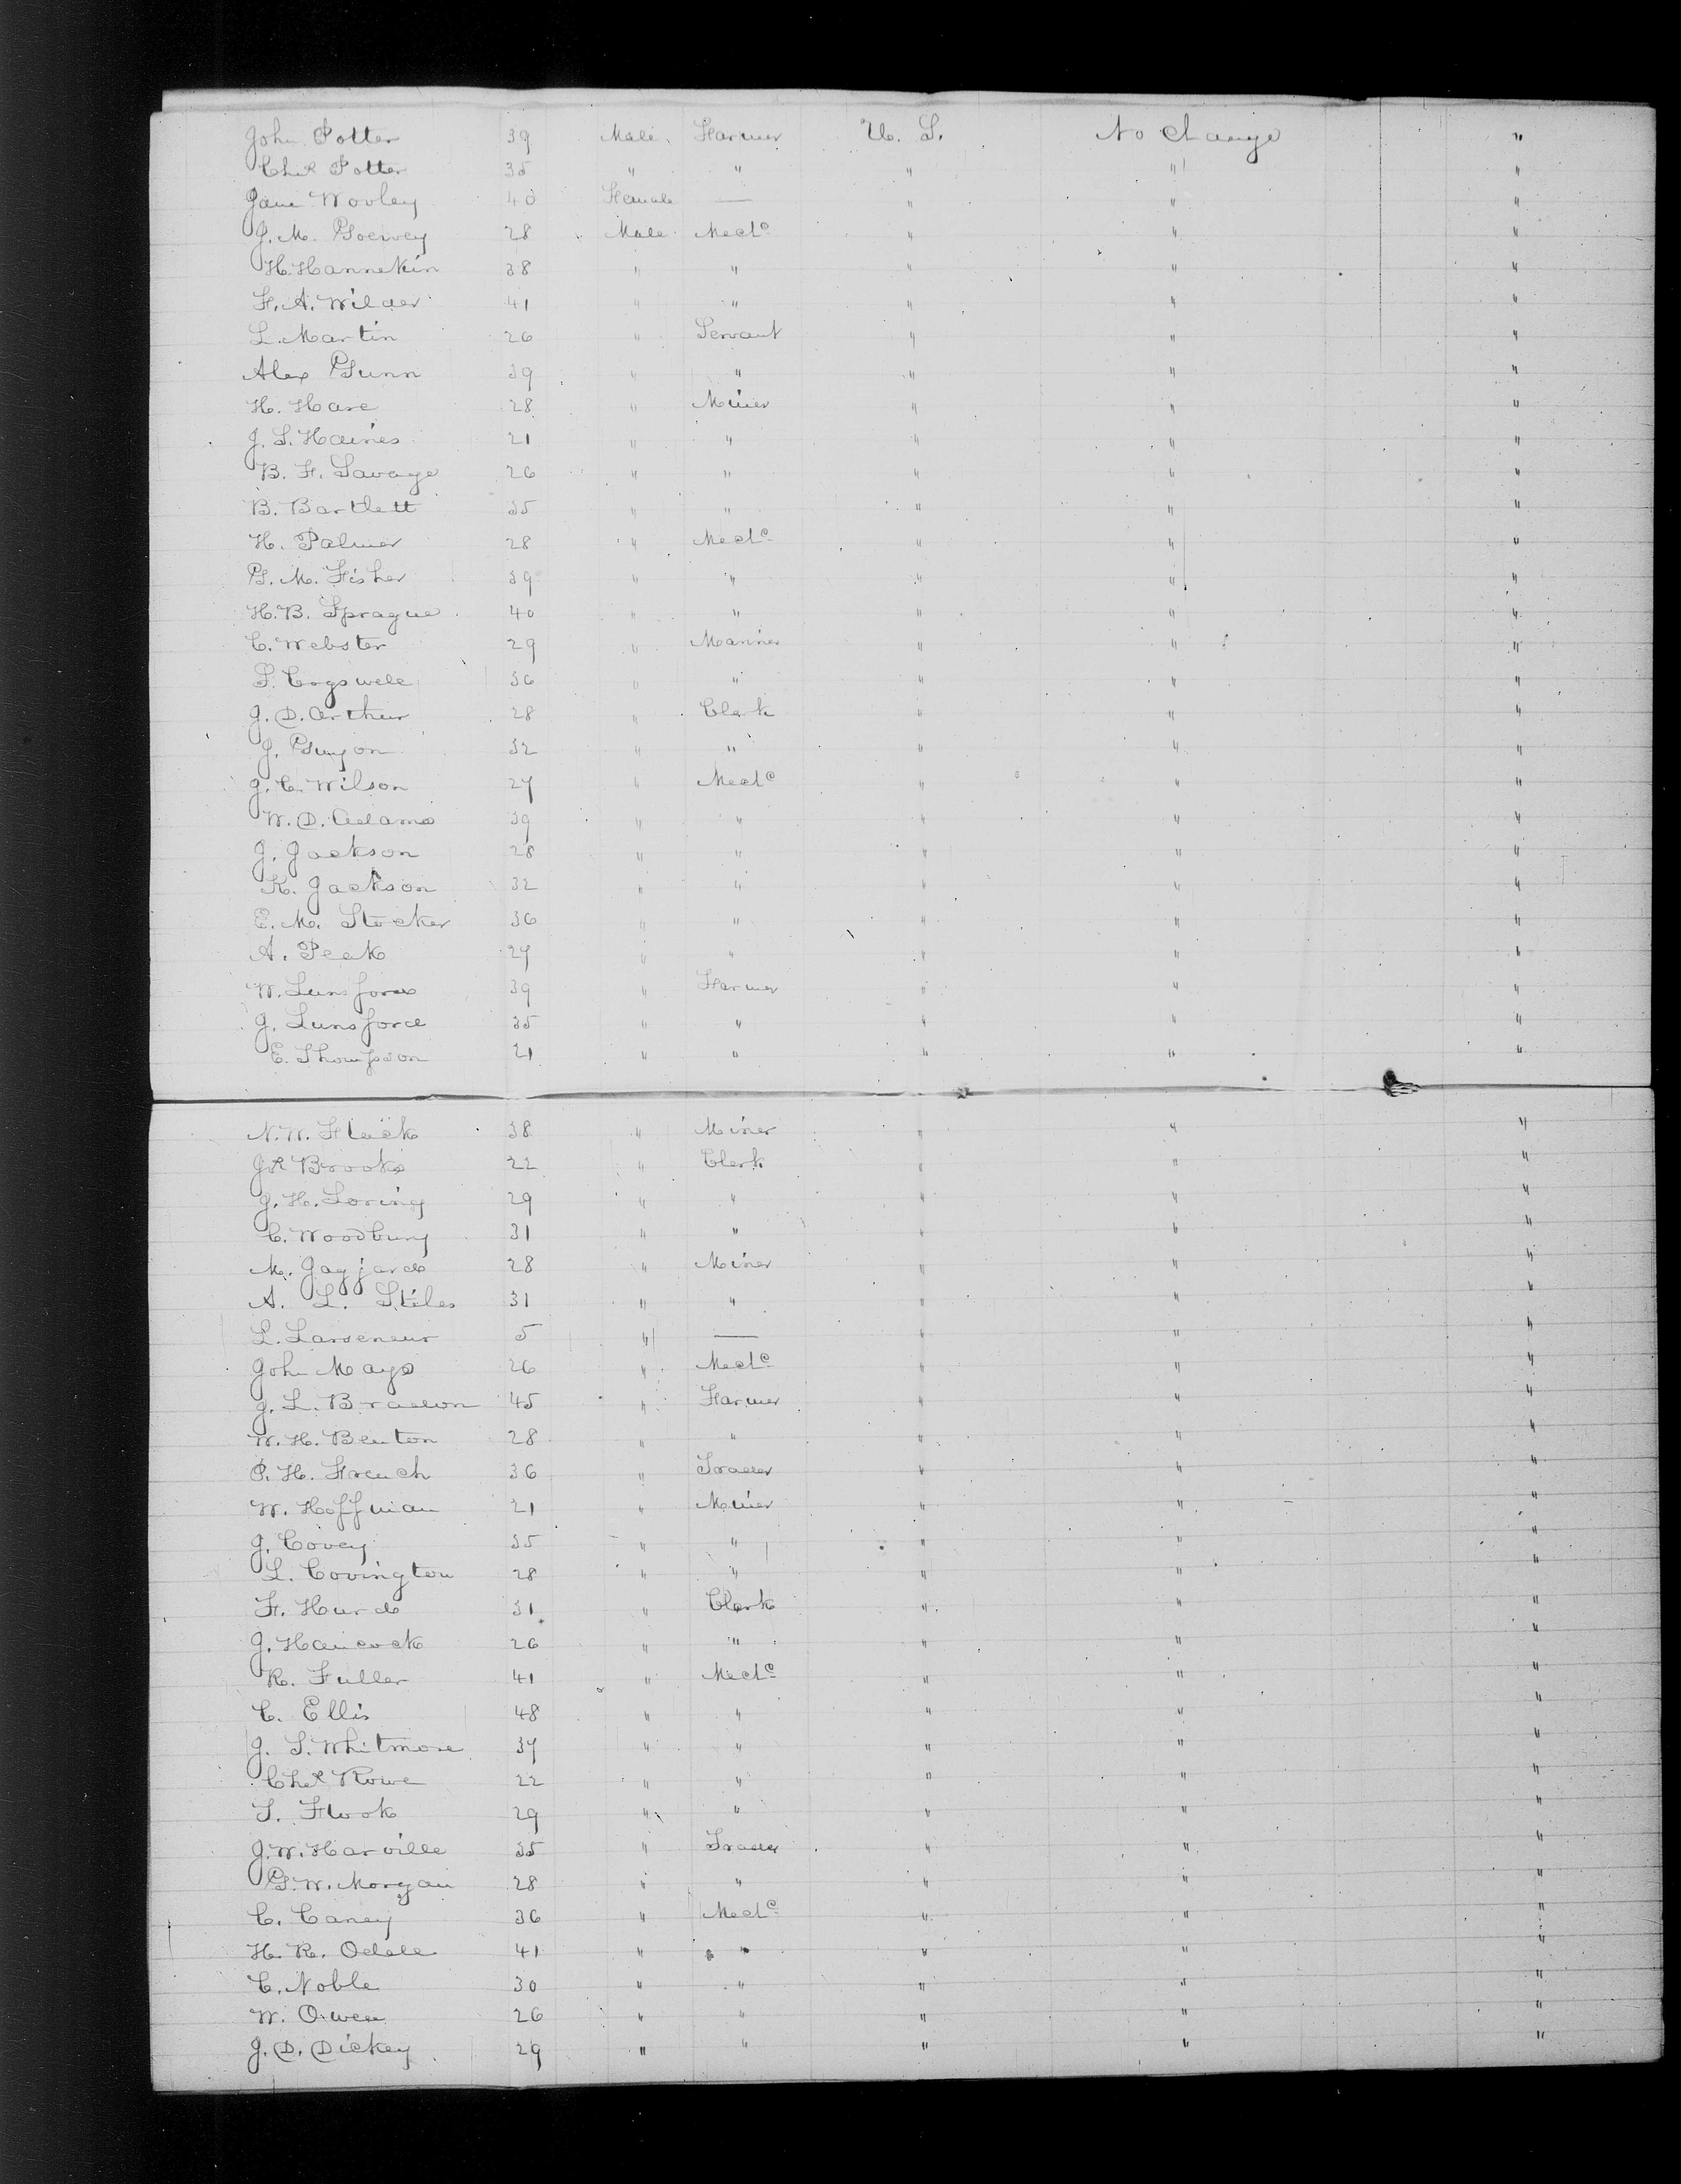 John Potter 39 Male Farmer U. S. No Change "
Chs Potter 35 " " " " "
Jane Wooley 40 Female — " " "
J. M. Goewey 28 Male Mechc " " "
H. Hannekin 38 " " " " "
F. A. Wilder 41 " " " " "
L. Martin 26 " Servant " " "
Alex Gunn 39 " " " " "
H. Hare 28 " Miner " " "
J. S. Haines 21 " " " " "
B. F. Savage 26 " " " " "
B. Bartlett 35 " " " " "
H. Palmer 28 " Mechc " " "
G. M. Fisher 39 " " " " "
H. B. Sprague 40 " " " " "
C. Webster 29 " Mariner " " "
P. Cogswell 36 " " " " "
J. D. Arthur 28 " Clerk " " "
J. Gunyon 32 " " " " "
J. C. Wilson 27 " Mechc " " "
W. D. Adams 39 " " " " "
J. Jackson 28 " " " " "
K. Jackson 32 " " " " "
E. M. Stocker 36 " " " " "
A. Peak 27 " " " " "
W. Lunsford 39 " Farmer " " "
J. Lunsford 35 " " " " "
E. Thompson 21 " " " " "
N. W. Flack 38 " Miner " " "
Brooks 22 " Clerk " " "
J. H. Loring 29 " " " " "
C. Woodbury 31 " " " " "
M. 28 " Miner " " "
A. L. Stiles 31 " " " " "
L. Larseneur 5 " — " " "
John Mays 26 " Mechc " " "
J. L. Bradon 45 " Farmer " " "
W. H. Benton 28 " " " " "
P. H. French 36 " Trader " " "
W. Hoffman 21 " Miner " " "
J. Covey 35 " " " " "
L. Covington 28 " " " " "
F. Hurd 31 " Clerk " " "
J. Hancock 26 " " " " "
R. Fuller 41 " Mechc " " "
C. Ellis 48 " " " " "
J. S. Whitmore 37 " " " " "
Chs Rowe 22 " " " " "
S. Flook 29 " " " " "
J. W. Harville 35 " Trader " " "
G. W. Morgan 28 " " " " "
C. Caney 36 " Mechc " " "
H. R. Odell 41 " " " " "
C. Noble 30 " " " " "
W. Owen 26 " " " " "
J. D. Dickey 29 " " " " "